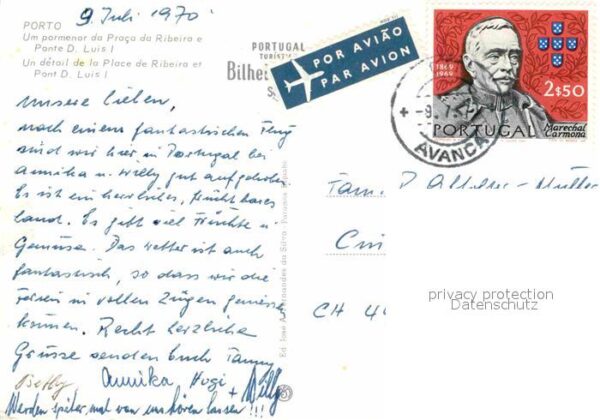 9. Juli 1970
PORTO
Um pormenor da Praça da Ribeira e
Ponte D. Luis I
Un détail de la Place de Ribeira et
Pont D. Luis I
PORTUGAL
Bilhe
POR AVIÃO
PAR AVION
1869
1969
2$50
Marechal
Carmona
PORTUGAL
-9.7.
AVANCA
Unsere Lieben,
nach einem fantastischen Flug
sind wir hier in Portugal bei
Annika u. Willy gut aufgehoben
Es ist ein herrliches, fruchtbares
Land. Es gibt viel Früchte u.
Gemüse. Das Wetter ist auch
fantastisch, so dass wir die
Ferien in vollen Zügen geniessen
können. Recht herzliche
Grüsse senden Euch
Betly Annika Hugi + Willy
Werden später mal von uns hören lassen!!!
Fam.
CH
privacy protection
Datenschutz